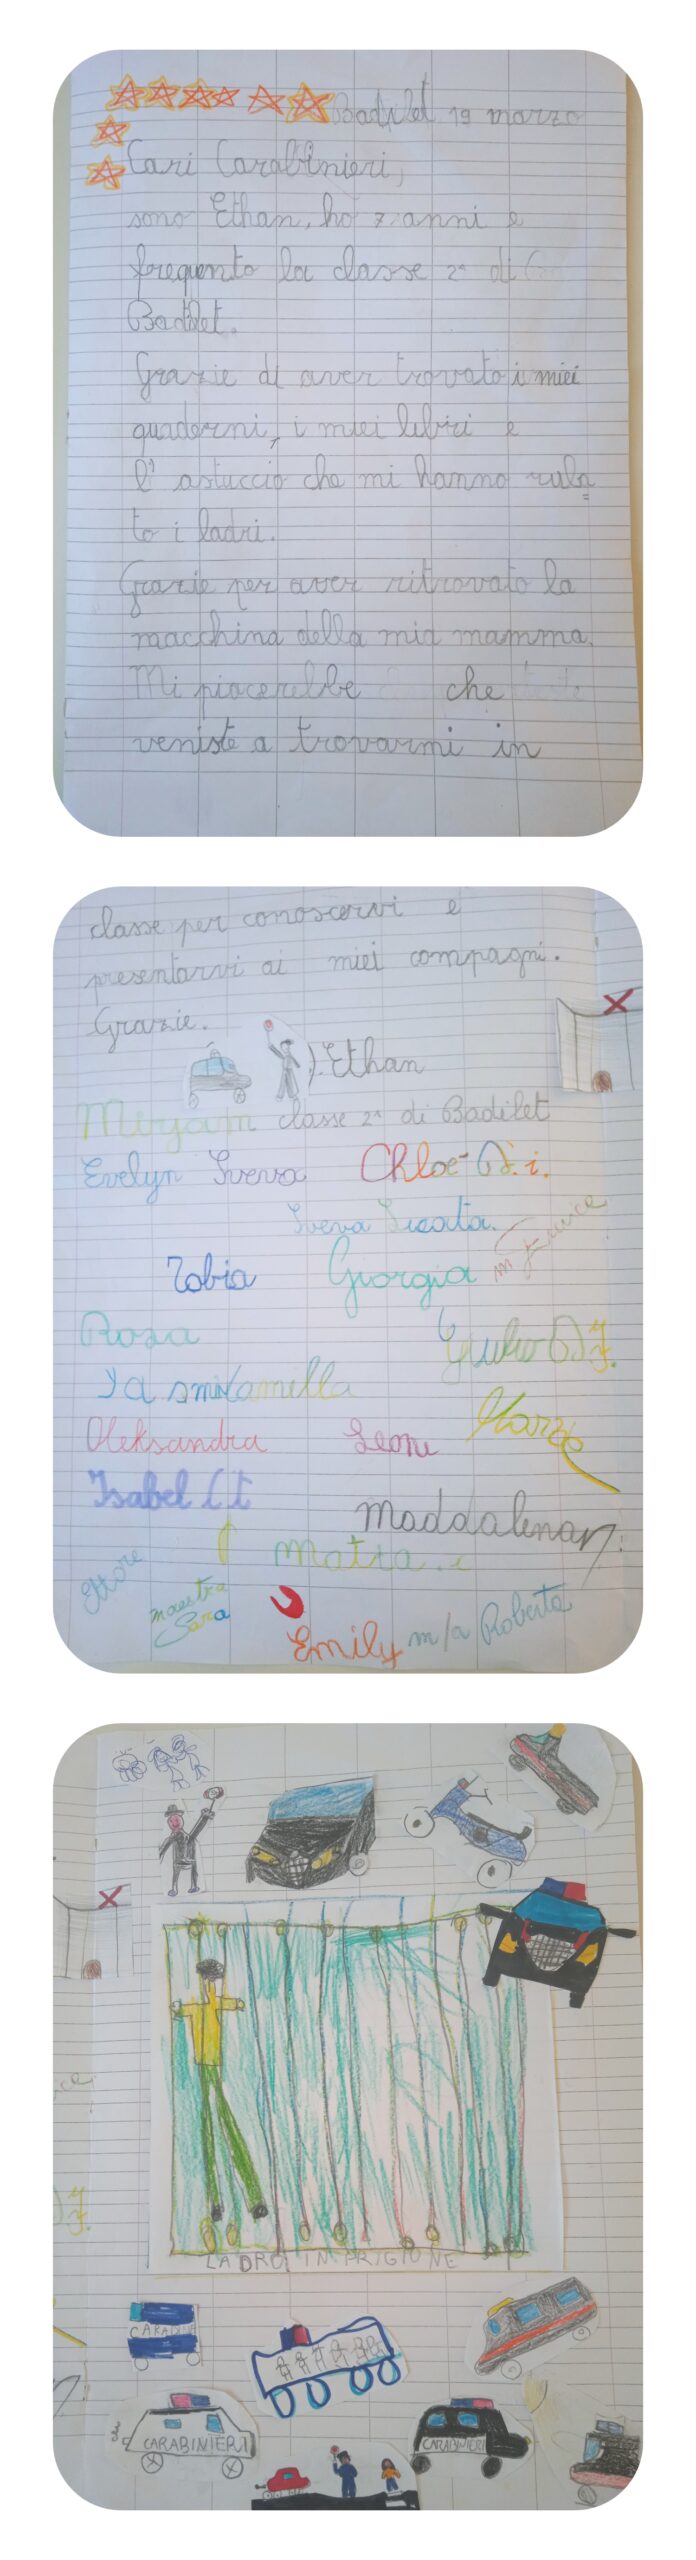 Badilet 19 marzo
Cari Carabinieri,
sono Ethan, ho 7 anni e
frequento la classe 2ª di
Badilet.
Grazie di aver trovato i miei
quaderni, i miei libri e
l'astuccio che mi hanno ruba
to i ladri.
Grazie per aver ritrovato la
macchina della mia mamma.
Mi piacerebbe che
veniste a trovarmi in
classe per conoscervi e
presentarvi ai miei compagni.
Grazie.
Ethan
Miryam classe 2ª di Badilet
Evelyn Sveva Chloe D. i.
Sveva Licata.
Tobia Giorgia
Rosa Giulio
Camilla
Oleksandra Leoni Marzio
Isabel
Maddalena
Mattia
Ettore maestra Sara
Emily Roberta
LADRO IN PRIGIONE
CARABINIERI
CARABINIERI